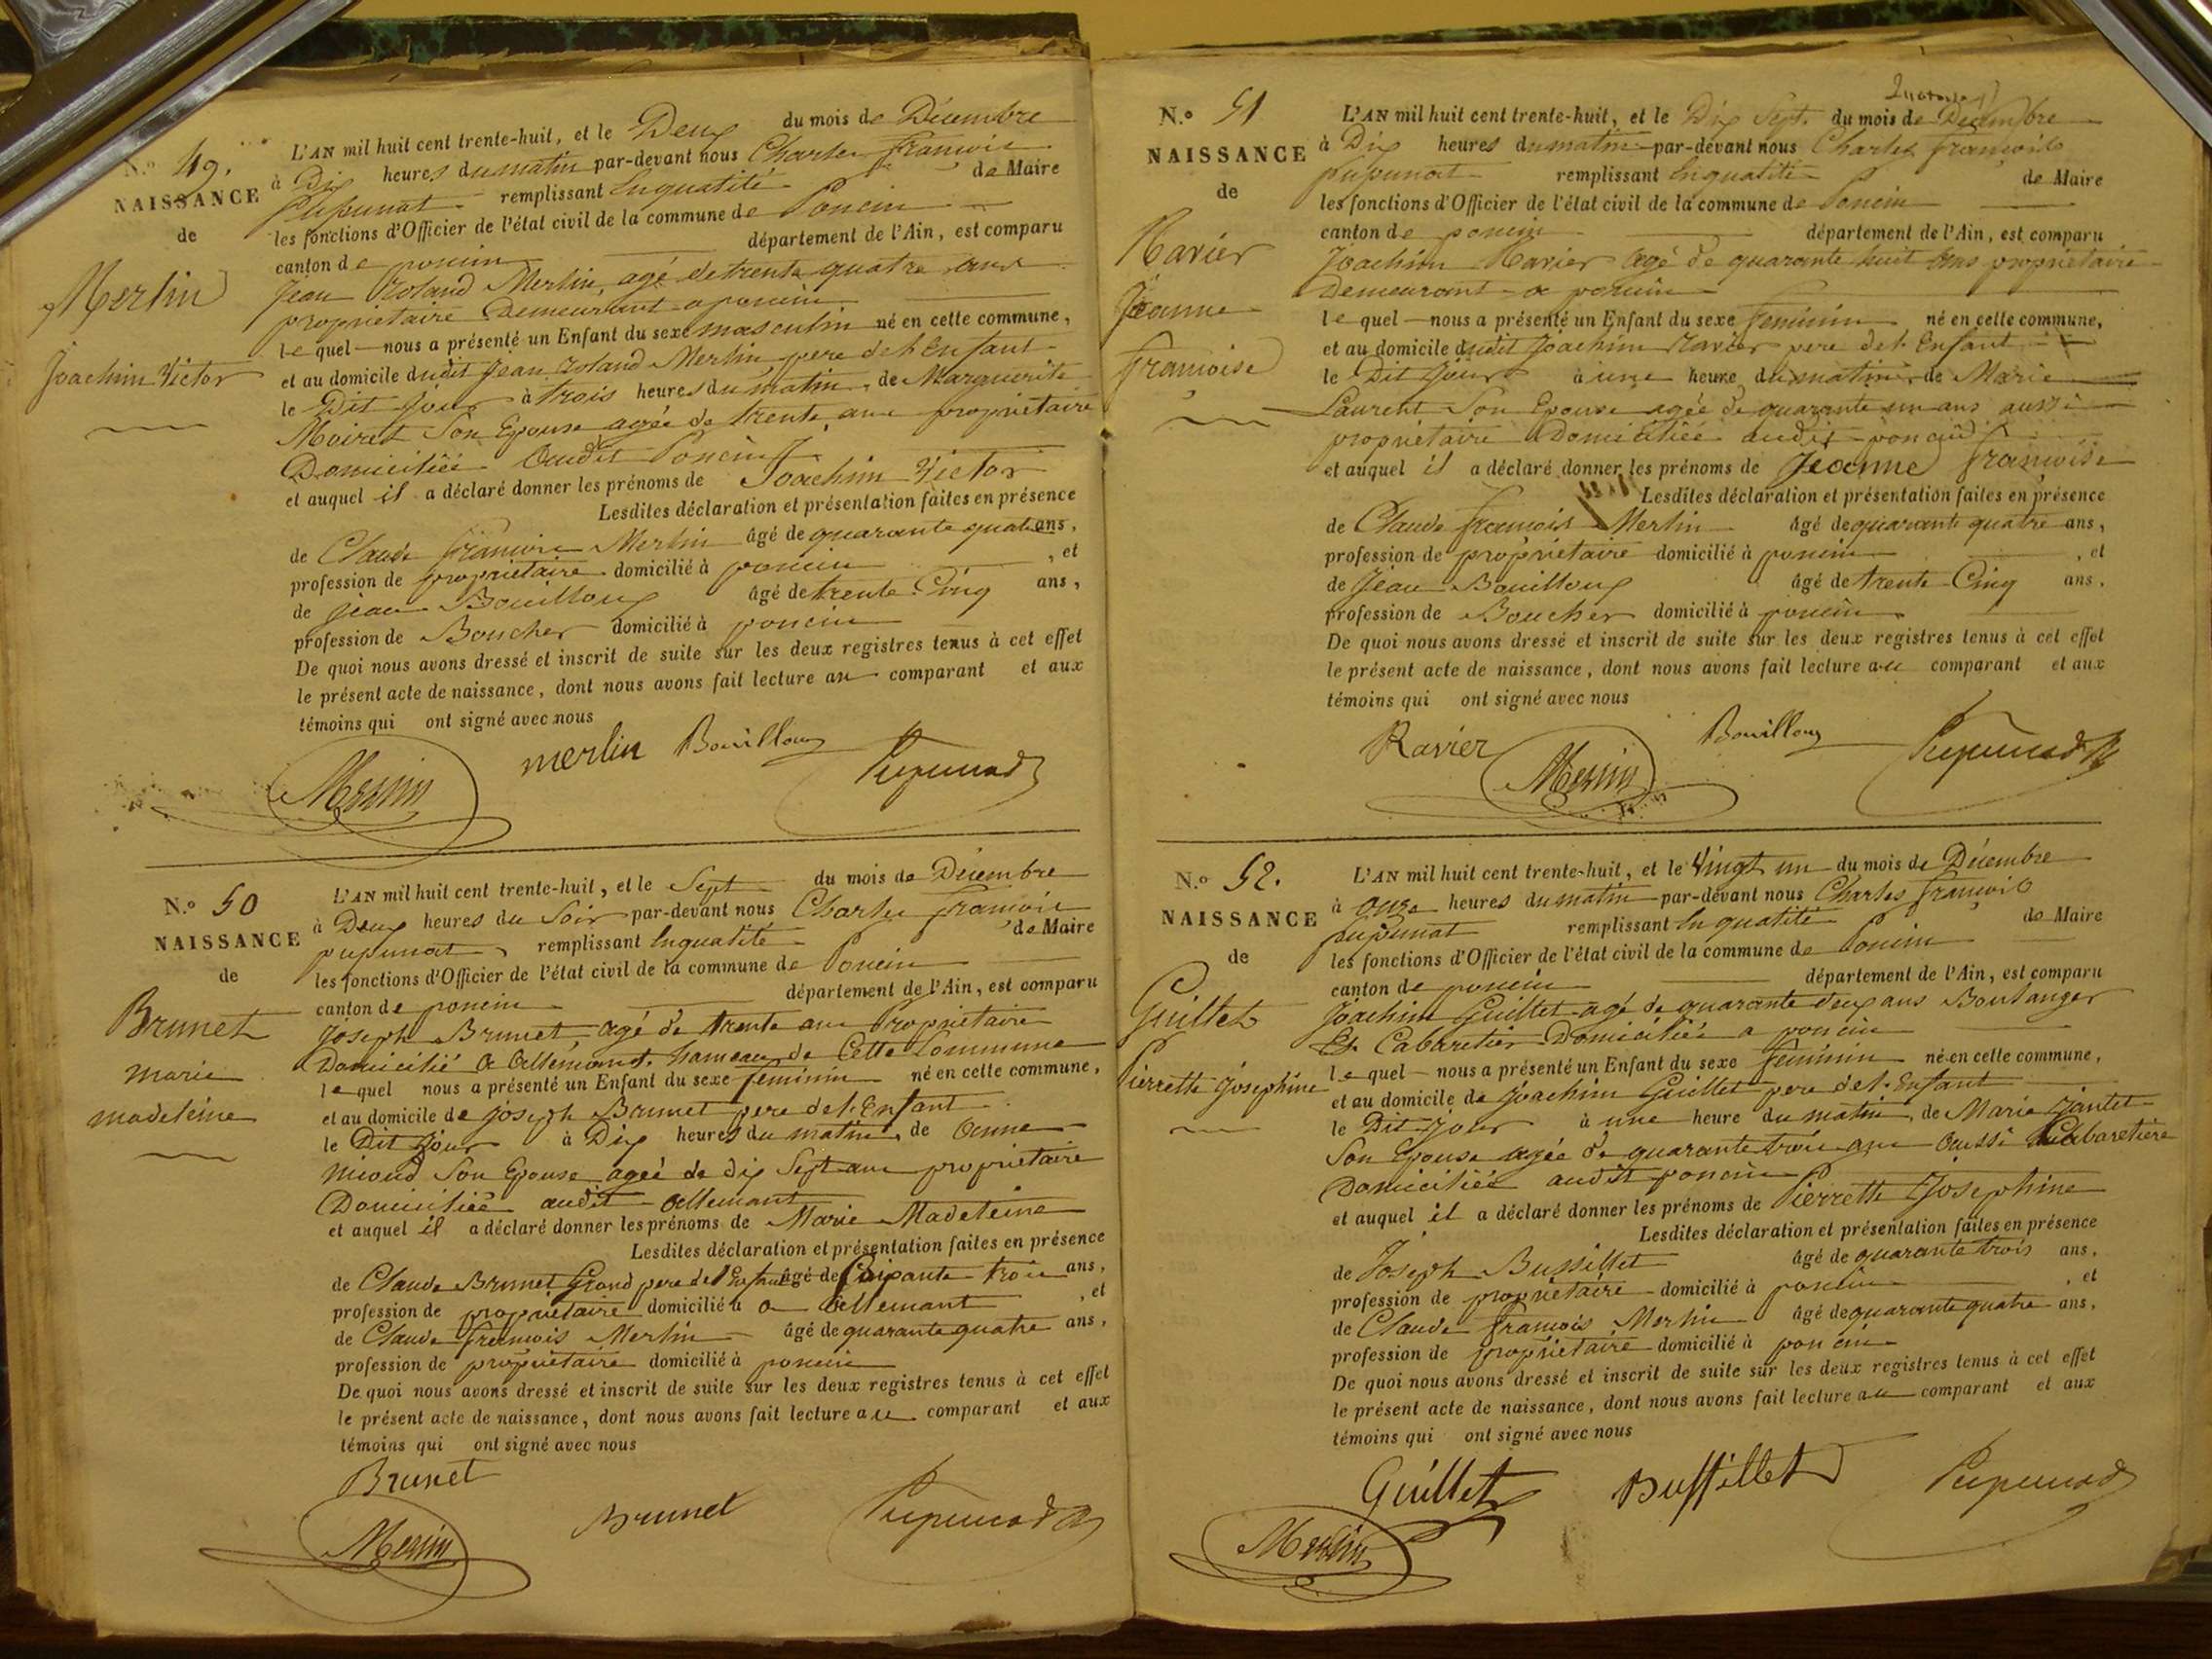 N.o 49.
NAISSANCE
de
Merlin
Joachim Victor
L'AN mil huit cent trente-huit, et le Deux du mois de Décembre
à Dix heures du matin par-devant nous Charles françois
pupunat remplissant En qualité de Maire
les fonctions d'Officier de l'état civil de la commune de Poncin
canton de poncin département de l'Ain, est comparu
Jean Roland Merlin, agé de trente quatre ans
proprietaire Demeurant a poncin
lequel nous a présenté un Enfant du sexe masculin né en cette commune,
et au domicile dudit Jean roland Merlin pere de l'Enfant
le Dit jour à trois heures du matin, de Marguerite
Moiret Son Epouse agée de trente ans proprietaire
Domiciliée Audit Poncin
et auquel il a déclaré donner les prénoms de Joachim Victor
Lesdites déclaration et présentation faites en présence
de Claude françois Merlin âgé de quarante quatre ans,
profession de proprietaire domicilié à poncin , et
de jean Bouilloux âgé de trente Cinq ans,
profession de Boucher domicilié à poncin
De quoi nous avons dressé et inscrit de suite sur les deux registres tenus à cet effet
le présent acte de naissance, dont nous avons fait lecture au comparant et aux
témoins qui ont signé avec nous
merlin Bouilloux Pupunat
Merlin
N.o 50
NAISSANCE
de
Brunet
marie
madeleine
L'AN mil huit cent trente-huit, et le Sept du mois de Décembre
à Deux heures du Soir par-devant nous Charles françois
pupunat remplissant En qualité de Maire
les fonctions d'Officier de l'état civil de la commune de Poncin
canton de poncin département de l'Ain, est comparu
Joseph Brunet, agé de trente ans Proprietaire
Domicilié a Allemant, hameau de Cette Commune
lequel nous a présenté un Enfant du sexe feminin né en cette commune,
et au domicile de joseph Brunet pere de l'Enfant
le Dit jour à Dix heures du matin, de Anne
nioud Son Epouse agée de dix Sept ans proprietaire
Domiciliée audit Allemant
et auquel il a déclaré donner les prénoms de Marie Madeleine
Lesdites déclaration et présentation faites en présence
de Claude Brunet Grand pere de l'Enfant âgé de Soixante trois ans,
profession de proprietaire domicilié à a Allemant , et
de Claude françois Merlin âgé de quarante quatre ans,
profession de proprietaire domicilié à poncin
De quoi nous avons dressé et inscrit de suite sur les deux registres tenus à cet effet
le présent acte de naissance, dont nous avons fait lecture au comparant et aux
témoins qui ont signé avec nous
Brunet
Merlin Brunet Pupunat
N.o 51
NAISSANCE
de
Ravier
Jeanne
françoise
L'AN mil huit cent trente-huit, et le Dix Sept du mois de Décembre
à Dix heures du matin par-devant nous Charles françois
pupunat remplissant En qualité de Maire
les fonctions d'Officier de l'état civil de la commune de Poncin
canton de poncin département de l'Ain, est comparu
Joachim Ravier agé de quarante huit ans proprietaire
Demeurant a poncin
lequel nous a présenté un Enfant du sexe feminin né en cette commune,
et au domicile dudit Joachim ravier pere de l'Enfant
le Dit jour à une heure du matin, de Marie
Laurent Son Epouse agée de quarante un ans aussi
proprietaire Domiciliée audit poncin
et auquel il a déclaré donner les prénoms de Jeanne françoise
Lesdites déclaration et présentation faites en présence
de Claude françois Merlin âgé de quarante quatre ans,
profession de proprietaire domicilié à poncin , et
de Jean Bouilloux âgé de trente Cinq ans,
profession de Boucher domicilié à poncin
De quoi nous avons dressé et inscrit de suite sur les deux registres tenus à cet effet
le présent acte de naissance, dont nous avons fait lecture au comparant et aux
témoins qui ont signé avec nous
Ravier Merlin Bouilloux Pupunat
N.o 52.
NAISSANCE
de
Guillet
Pierrette Josephine
L'AN mil huit cent trente-huit, et le Vingt un du mois de Décembre
à onze heures du matin par-devant nous Charles françois
pupunat remplissant En qualité de Maire
les fonctions d'Officier de l'état civil de la commune de Poncin
canton de poncin département de l'Ain, est comparu
Joachim Guillet agé de quarante deux ans Boulanger
Et Cabaretier Domiciliée a poncin
lequel nous a présenté un Enfant du sexe feminin né en cette commune,
et au domicile de Joachim Guillet pere de l'Enfant
le Dit jour à une heure du matin, de Marie Jantet
Son Epouse agée de quarante trois ans Aussi Cabaretière
Domiciliée audit poncin
et auquel il a déclaré donner les prénoms de Pierrette Josephine
Lesdites déclaration et présentation faites en présence
de Joseph Bussillet âgé de quarante trois ans,
profession de proprietaire domicilié à poncin , et
de Claude françois Merlin âgé de quarante quatre ans,
profession de proprietaire domicilié à poncin
De quoi nous avons dressé et inscrit de suite sur les deux registres tenus à cet effet
le présent acte de naissance, dont nous avons fait lecture au comparant et aux
témoins qui ont signé avec nous
Guillet Bussillet Pupunat
Merlin